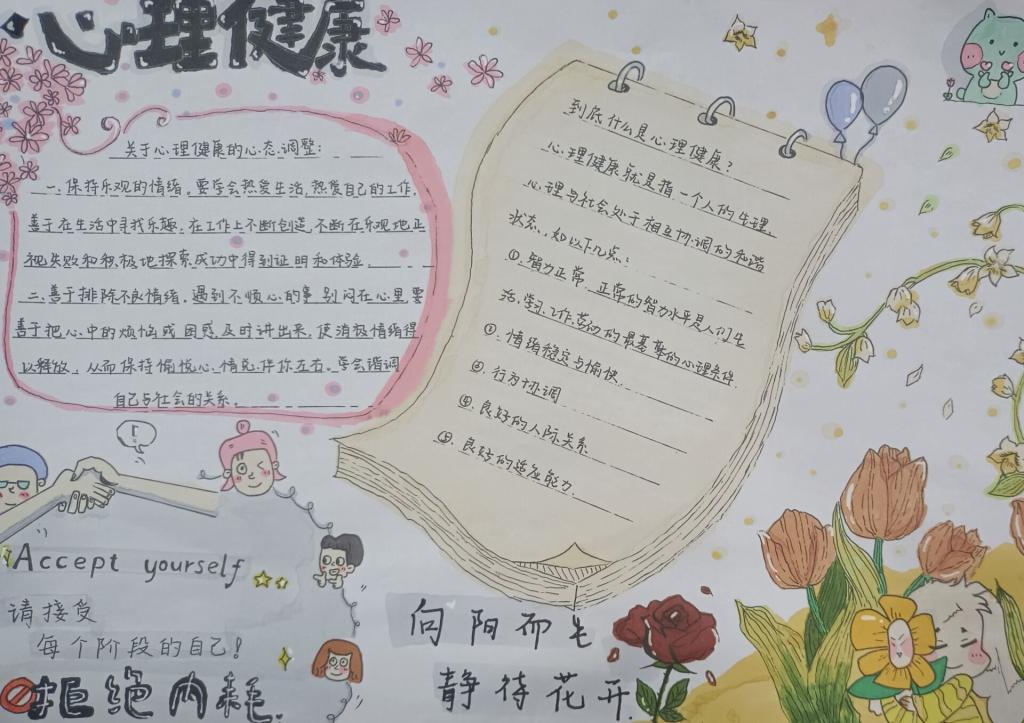 心理健康
关于心理健康的心态调整:
一、保持乐观的情绪,要学会热爱生活,热爱自己的工作,
善于在生活中寻找乐趣,在工作上不断创造,不断在乐观地正
视失败和积极地探索成功中得到证明和体验。
二、善于排除不良情绪,遇到不顺心的事别闷在心里要
善于把心中的烦恼或困惑及时讲出来,使消极情绪得
以释放,从而保持愉悦心情总伴你左右。学会谐调
自己与社会的关系。
到底什么是心理健康?
心理健康就是指一个人的生理、
心理与社会处于相互协调的和谐
状态,如以下几点:
①、智力正常,正常的智力水平是人们生
活、学习、工作、劳动的最基本的心理条件.
②、情绪稳定与愉快.
③、行为协调
④、良好的人际关系
⑤、良好的适应能力.
Accept yourself
请接受
每个阶段的自己!
拒绝内耗.
向阳而生
静待花开.